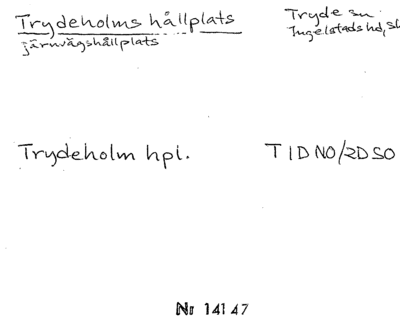 Trydeholms hållplats
järnvägshållplats
Tryde sn.
Ingelstads hd, Sk
Trydeholm hpl. T 1D NO/2D SO
Nr 14147